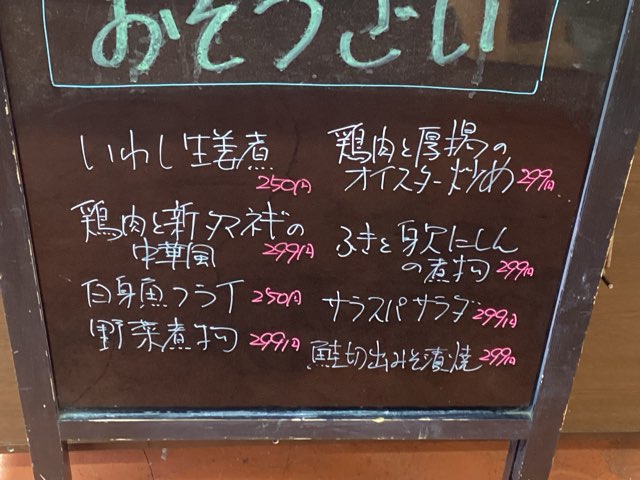 おそうざい
いわし生姜煮
250円
鶏肉と新タマネギの
中華風 299円
白身魚フライ 250円
野菜煮物 299円
鶏肉と厚揚の
オイスター炒め 299円
ふきと身欠にしん
の煮物 299円
サラスパサラダ 299円
鮭切出みそ漬焼 299円